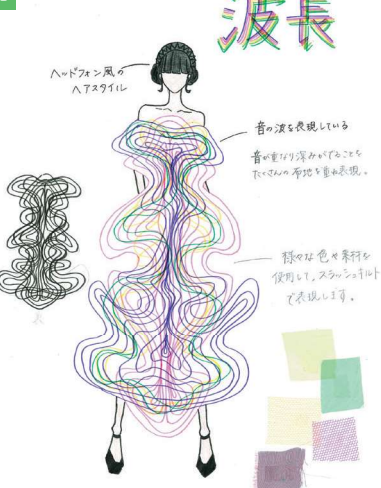 波長
ヘッドフォン風の
ヘアスタイル
音の波を表現している
音が重なり深みがでることを
たくさんの布地を重ね表現。
様々な色や素材を
使用して、スラッシュキルト
で表現します。